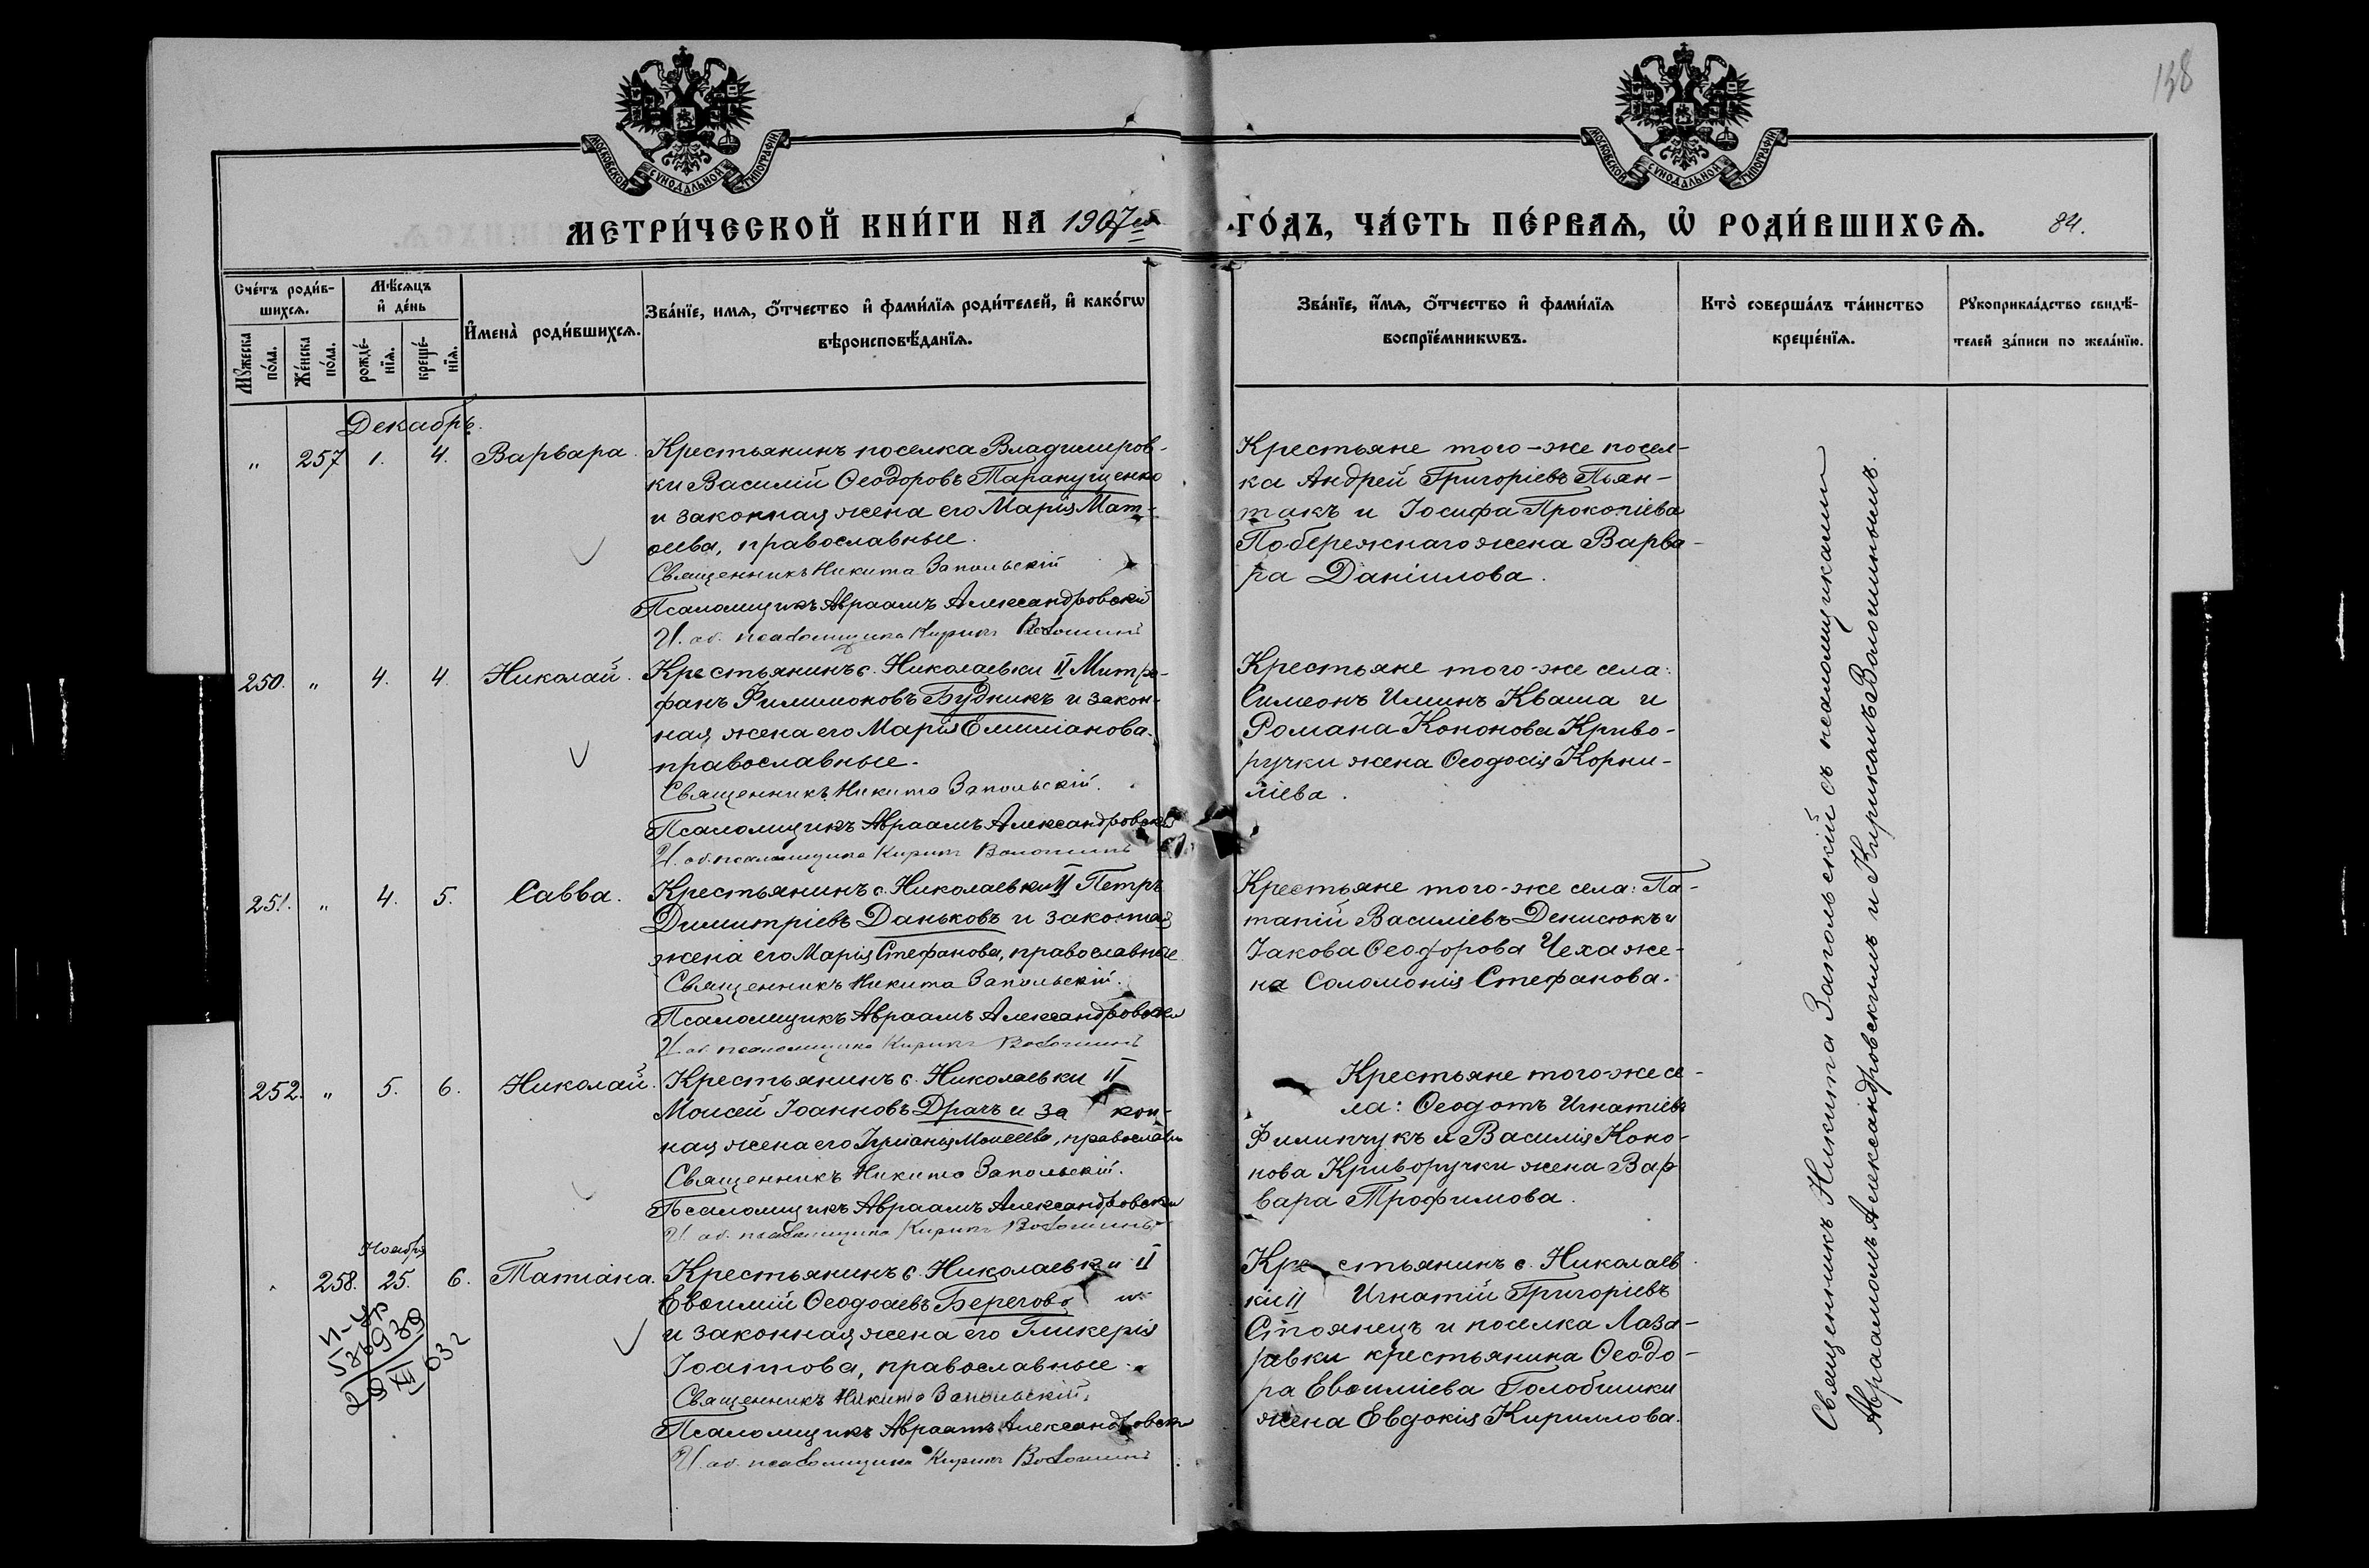 138
МОСКОВСКОЙ СѴНОДАЛЬНОЙ ТИПОГРАФІИ
МОСКОВСКОЙ СѴНОДАЛЬНОЙ ТИПОГРАФІИ
МЕТРИ́ЧЕСКОЙ КНИ́ГИ НА 1907ой ГО́ДЪ, ЧА́СТЬ ПЕ́РВАѦ, Ѡ҆ РОДИ́ВШИХСѦ. 84.
Сче́тъ роди́в-
шихсѧ.
Мꙋжеска
по́ла.
Же́нска
по́ла.
Мѣ́сѧцъ
и҆ де́нь
рожде́-
нїѧ.
креще́-
нїѧ.
И҆мена̀ роди́вшихсѧ.
Зва́нїе, имѧ, ѻ҆́тчество и҆ фами́лїѧ роди́телей, и҆ како́гѡ
вѣроисповѣ́данїѧ.
Зва́нїе, и҆́мѧ, ѻ҆́тчество и҆ фами́лїѧ
воспрїе́мникѡвъ.
Кто̀ соверша́лъ та́инство
креще́нїѧ.
Рꙋкоприкла́дство свидѣ́-
телей за́писи по жела́нїю.
Декабрь.
" 257 1. 4. Варвара.
Крестьянинъ поселка Владимиров-
ки Василій Ѳеодоровъ Таранущенко
и законная жена его Марія Мат-
ѳеева, православные.
Священникъ Никита Запольскій
Псаломщикъ Авраамъ Александровскій
И. об. псаломщика Кирикъ Волошинъ
Крестьяне того-же посел-
ка Андрей Григоріевъ Пьян-
такъ и Іосифа Прокопіева
Побережнаго жена Варва-
ра Даніилова.
250. " 4. 4. Николай.
Крестьянинъ с. Николаевки II Митро-
фанъ Филимоновъ Будникъ и закон-
ная жена его Марія Емиліанова.
православные.
Священникъ Никита Запольскій.
Псаломщикъ Авраамъ Александровскій
И. об. псаломщика Кирикъ Волошинъ
Крестьяне того-же села:
Симеонъ Илиинъ Кваша и
Романа Кононова Криво-
ручки жена Ѳеодосія Корни-
ліева.
251. " 4. 5. Савва.
Крестьянинъ с. Николаевки II Петръ
Димитріевъ Даньковъ и законная
жена его Марія Стефанова, православные
Священникъ Никита Запольскій.
Псаломщикъ Авраамъ Александровскій
И. об. псаломщика Кирикъ Волошинъ
Крестьяне того-же села: Па-
тапій Василіевъ Денисюкъ и
Іакова Ѳеодорова Чеха же-
на Соломонія Стефанова.
252. " 5. 6. Николай.
Крестьянинъ с. Николаевки II
Моисей Іоанновъ Драчъ и за кон-
ная жена его Іуліанія Моисеева, православн
Священникъ Никита Запольскій.
Псаломщикъ Авраамъ Александровскій
И. об. псаломщика Кирикъ Волошинъ
Крестьяне того-же се-
ла: Ѳеодотъ Игнатіевъ
Филипчукъ и Василія Коно-
нова Криворучки жена Вар
вара Трофимова.
Ноября
258. 25. 6. Татіана.
Крестьянинъ с. Николаевки II
Евѳимій Ѳеодосіевъ Берегово
и законная жена его Гликерія
православные.
Священникъ Никита Запольскій.
Псаломщикъ Авраамъ Александровскій
И. об. псаломщика Кирикъ Волошинъ
Кре стьянинъ с. Николаев
ки II Игнатій Григоріевъ
Стоянецъ и поселка Лаза-
равки крестьянина Ѳеодо-
ра Евѳиміева Голобишки
жена Евдокія Кириллова.
Священникъ Никита Запольскій съ псаломщиками
Авраамомъ Александровскимъ и Кирикомъ Волошинымъ.